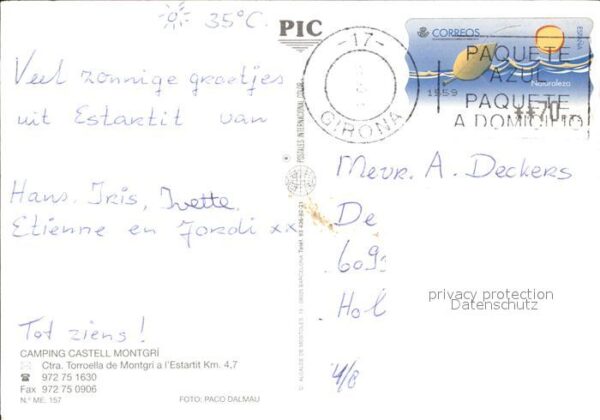 35°C.
Veel zonnige groetjes
uit Estartit van
Hans, Iris, Ivette,
Etienne en Jordi xx
Tot ziens!
CAMPING CASTELL MONTGRÍ
Ctra. Torroella de Montgrí a l'Estartit Km. 4,7
972 75 1630
Fax 972 75 0906
N.º ME. 157
FOTO: PACO DALMAU
PIC
POSTALES INTERNACIONAL COLOR
-17-
GIRONA
CORREOS
ESPAÑA
Naturaleza
1559
**70
PAQUETE
AZUL
PAQUETE
A DOMICILIO
Mevr. A. Deckers
De
609
Hol
4/8
privacy protection
Datenschutz